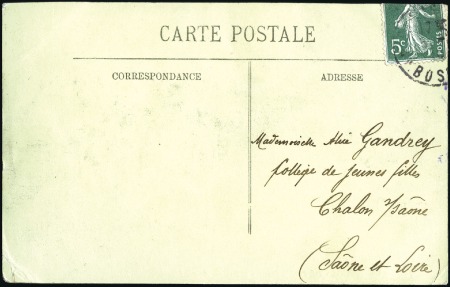 CARTE POSTALE
5c
POSTES
BOS
CORRESPONDANCE
ADRESSE
Mademoiselle Alice Gandrey
Collège de Jeunes filles
Chalon s/Saône
(Saône et Loire)